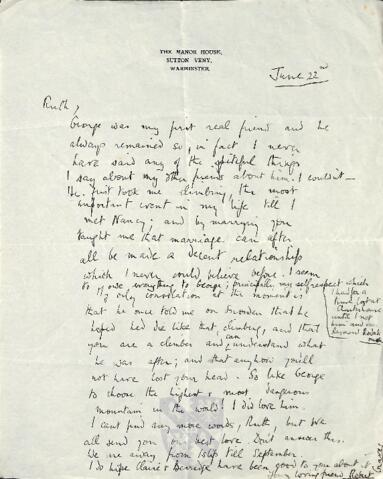 THE MANOR HOUSE,
SUTTON VENY,
WARMINSTER.
June 22nd
Ruth,
George was my first real friend and he
always remained so, in fact I never
have said any of the spiteful things
I say about my other friends about him: I couldn't —
He first took me climbing, the most
important event in my life till I
met Nancy; and by marrying you
taught me that marriage can after
all be made a decent relationship
which I never could believe before. I seem
to owe everything to George; principally my selfrespect which
I had for a
time lost at
Charterhouse
until I met
him and
only consolation at the moment is
that he once told me on Snowdon that he
hoped he'd die like that, climbing, and that
you are a climber and can understand what
he was after; and that anyhow you'll
not have lost your head. So like George
to choose the highest & most dangerous
mountain in the world! I did love him.
I can't find any more words, Ruth, but we
all send you our best love. Don't answer this.
We are away from till September.
I do hope Claire & have been good to you about it
Your loving friend Robert
Graves